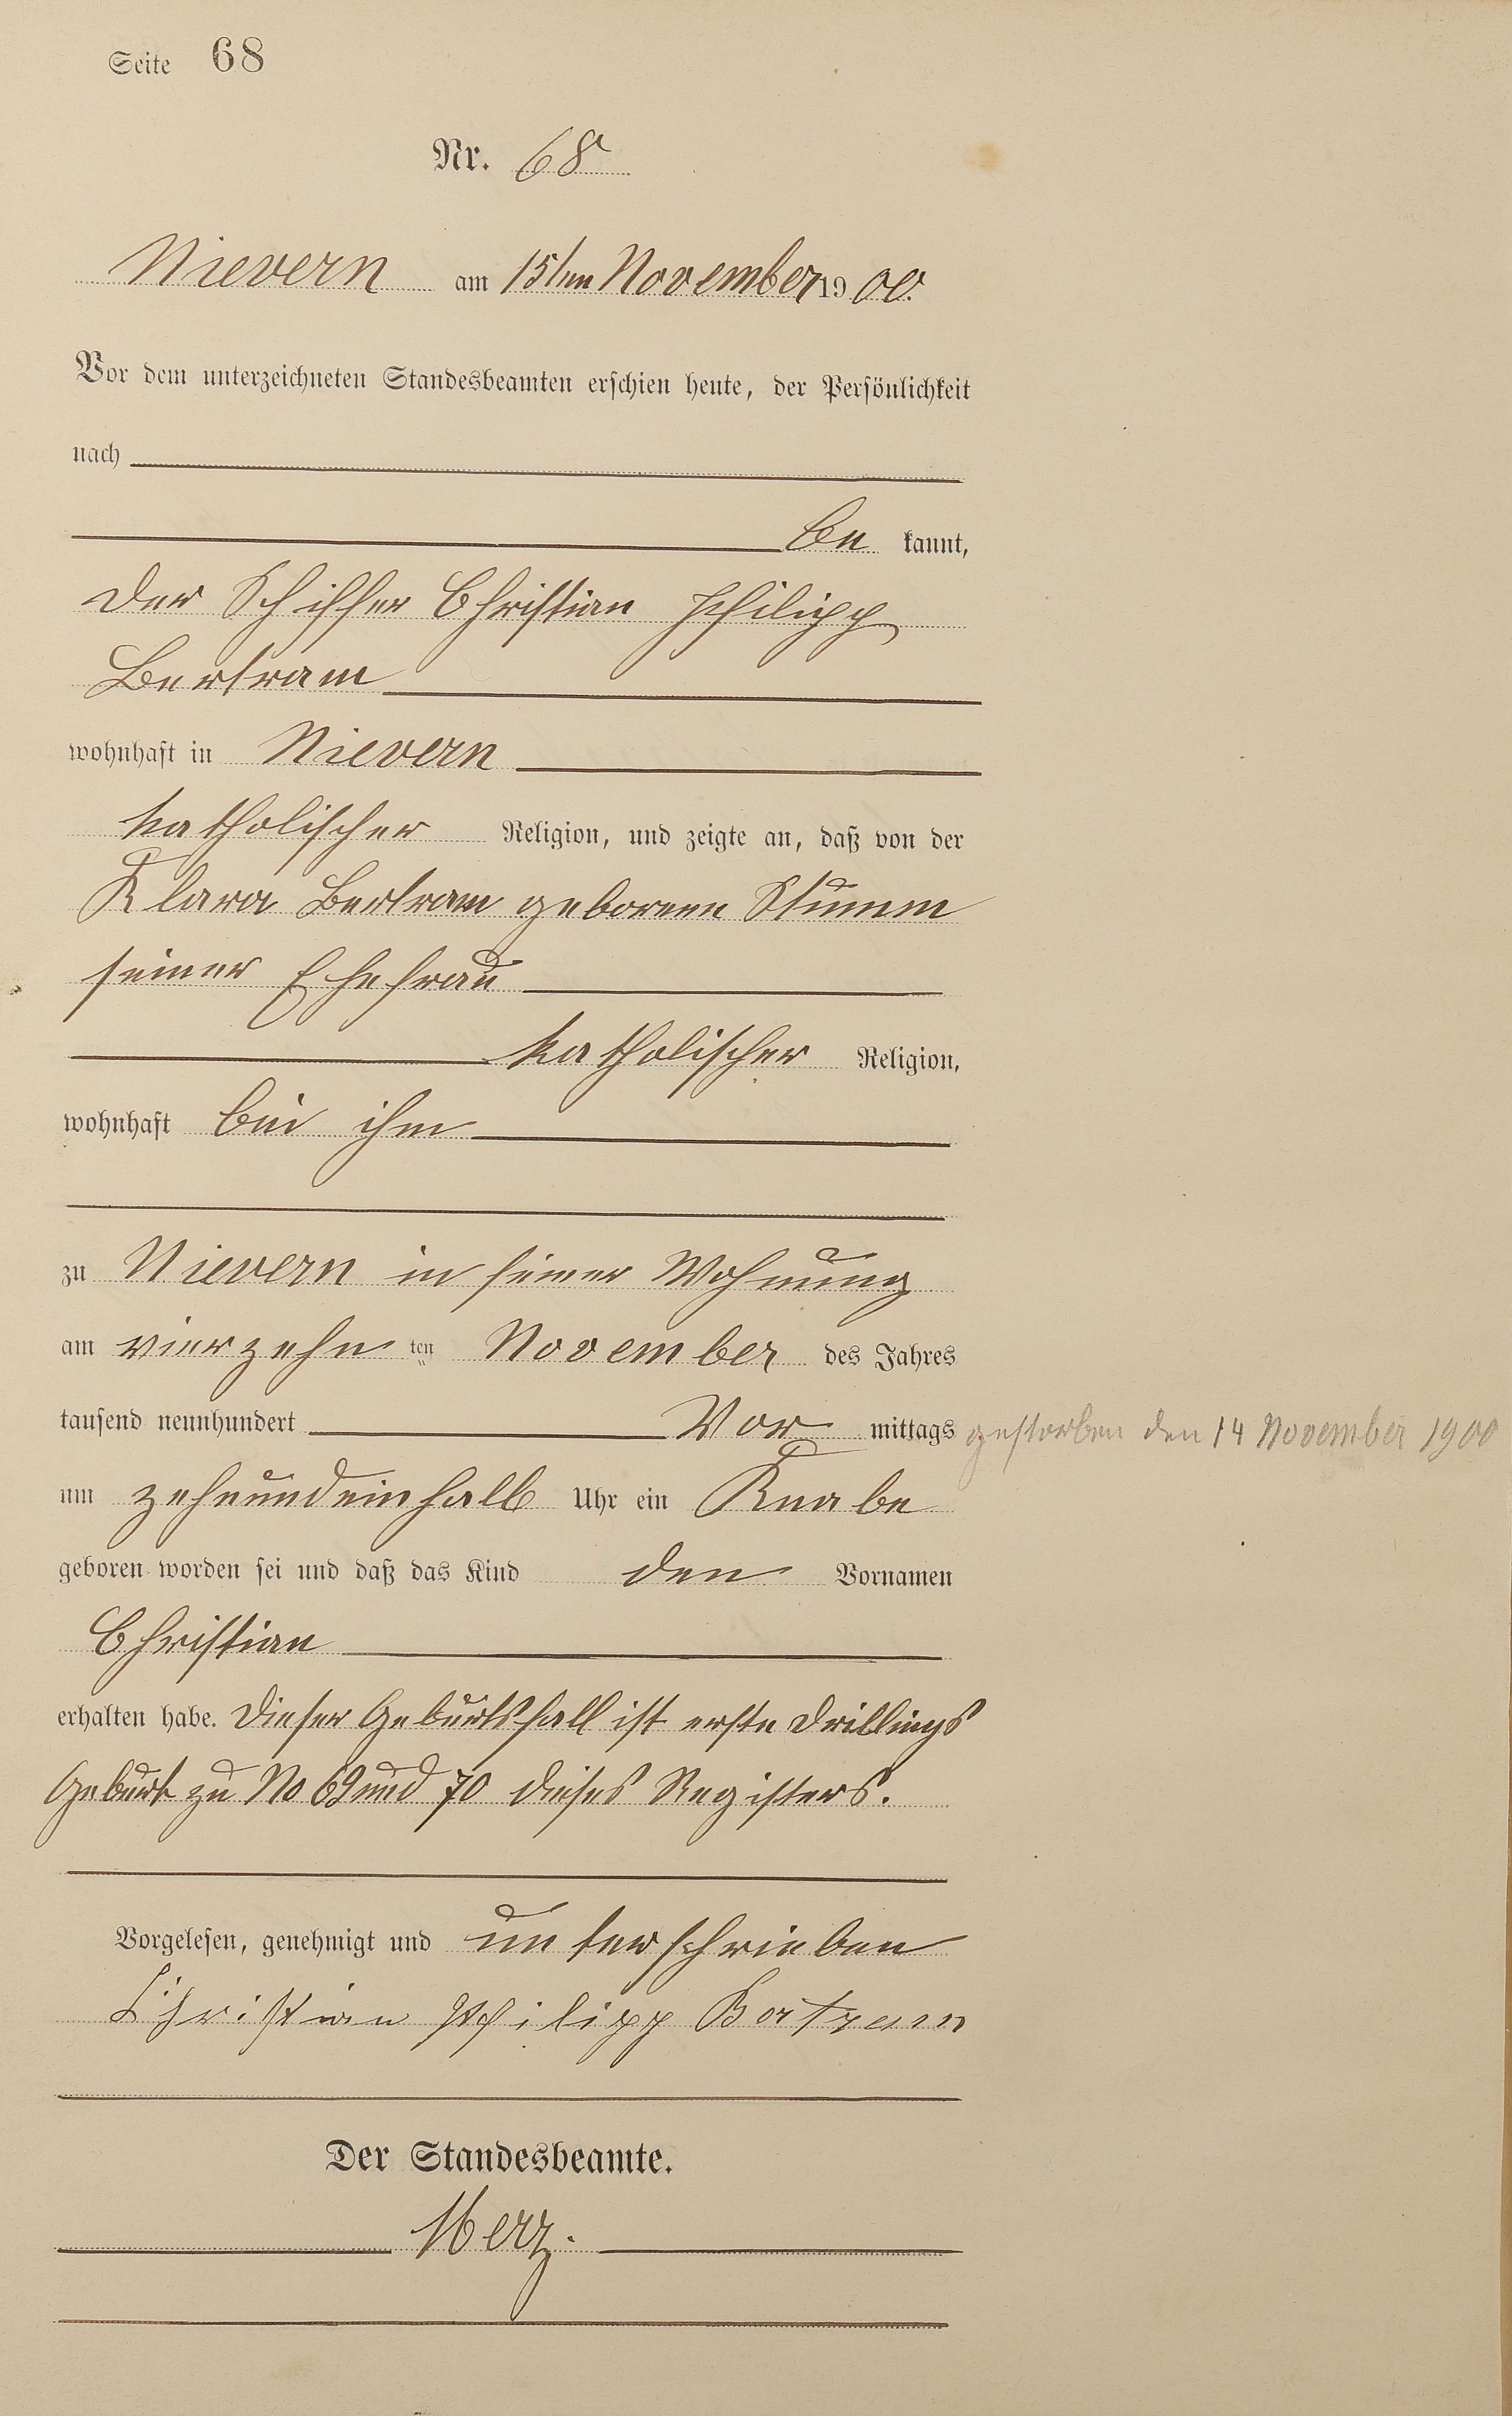 Seite 68
Nr. 68
Nievern am 15ten November 1900.
Vor dem unterzeichneten Standesbeamten erschien heute, der Persönlichkeit
nach
be kannt,
der Schiffer Christian Philipp
Bertram
wohnhaft in Nievern
katholischer Religion, und zeigte an, daß von der
Klara Bertram geborene Stumm
seiner Ehefrau
katholischer Religion,
wohnhaft bei ihm
zu Nievern in seiner Wohnung
am vierzehn ten November des Jahres
tausend neunhundert Vor mittags gestorben den 14 November 1900
um zehnundeinhalb Uhr ein Knabe
geboren worden sei und daß das Kind den Vornamen
Christian
erhalten habe. Dieser Geburtsfall ist erste Drillings
Geburt zu No 69 und 70 dieses Registers.
Vorgelesen, genehmigt und unterschrieben
Christian Philipp Bertram
Der Standesbeamte.